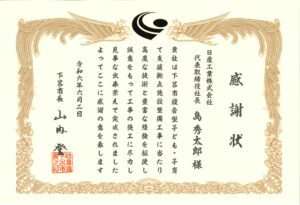 感謝状
日産工業株式会社
代表取締役社長
島秀太郎 様
貴社は下呂市総合型子ども・子育
て支援拠点施設整備工事に当たり
高度な技術と豊富な経験を駆使し
誠意をもって工事の施工に尽力し
見事な出来栄えで完成されました
よってここに感謝の意を表します
令和六年六月三日
下呂市長
山内登